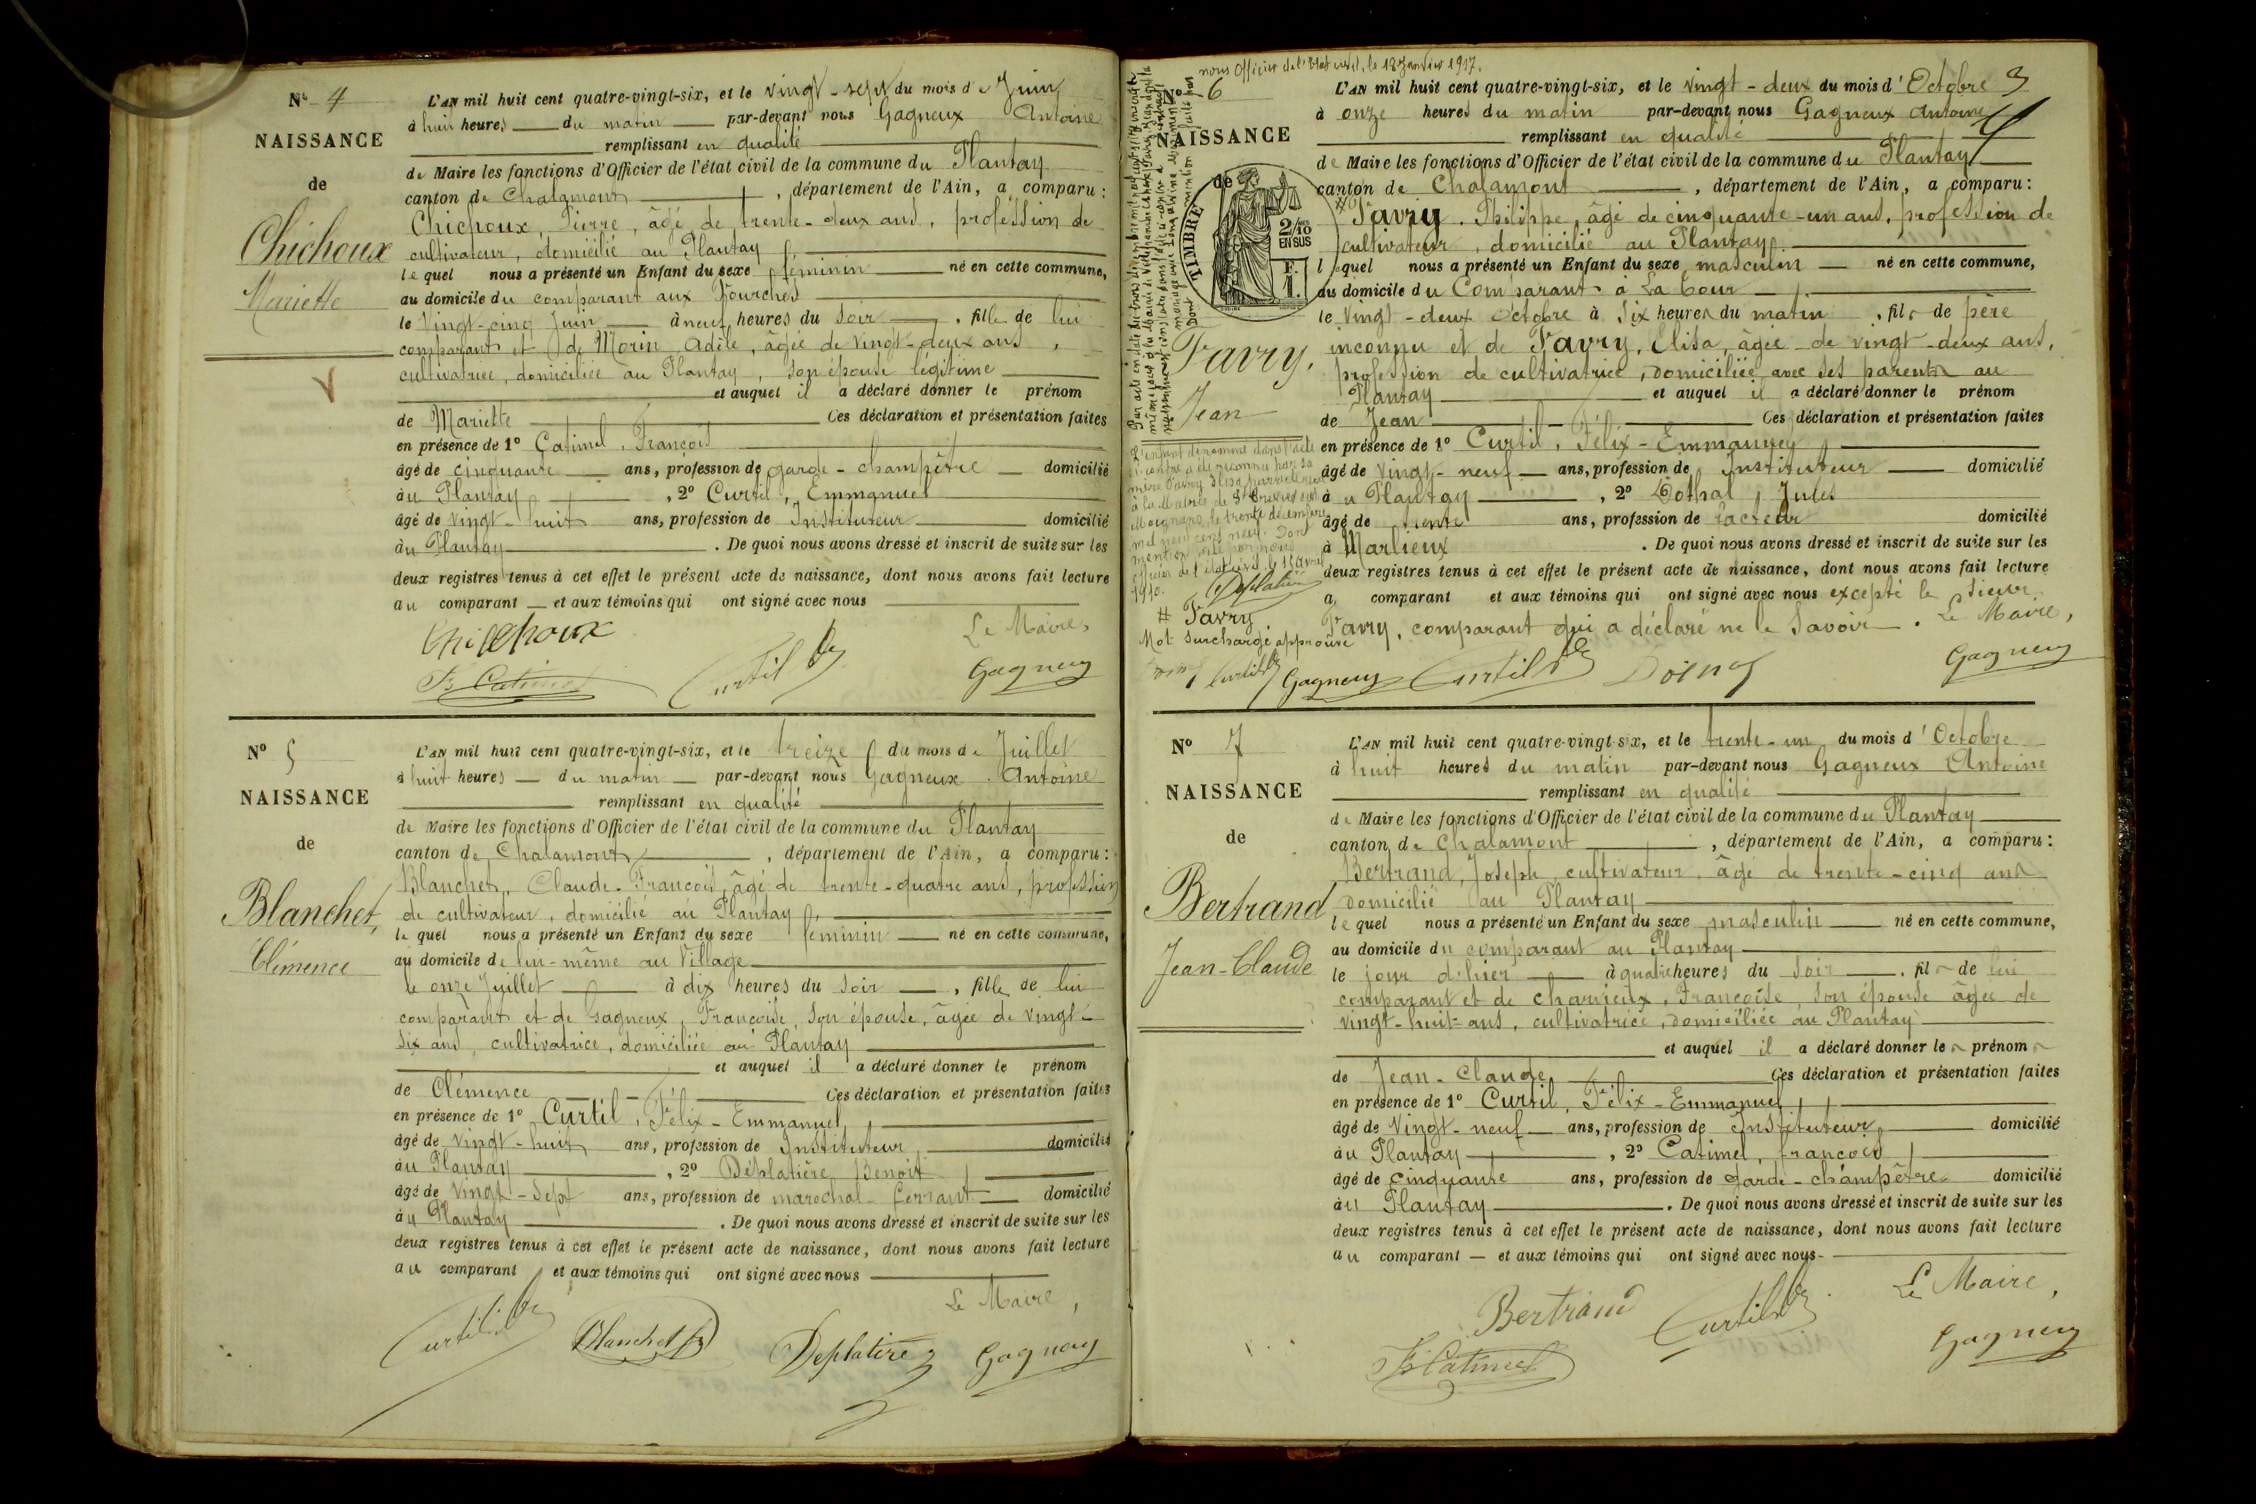 N° 4
NAISSANCE
de
Chichoux
Mariette
L'AN mil huit cent quatre-vingt-six, et le vingt-sept du mois de Juin
à huit heures du matin par-devant nous Gagneux Antoine
remplissant en qualité
de Maire les fonctions d'Officier de l'état civil de la commune du Plantay
canton de Chalamont, département de l'Ain, a comparu:
Chichoux, Pierre, âgé de trente-deux ans, profession de
cultivateur, domicilié au Plantay,
lequel nous a présenté un Enfant du sexe féminin né en cette commune,
au domicile du comparant aux Fourches
le Vingt-cinq Juin à neuf heures du soir, fille de lui
comparant et de Morin Adèle, âgée de vingt-deux ans,
cultivatrice, domiciliée au Plantay, son épouse légitime
et auquel il a déclaré donner le prénom
de Mariette Ces déclaration et présentation faites
en présence de 1° Catimel, François
âgé de cinquante ans, profession de garde-champêtre domicilié
au Plantay, 2° Curtil, Emmanuel
âgé de vingt-huit ans, profession de Instituteur domicilié
au Plantay. De quoi nous avons dressé et inscrit de suite sur les
deux registres tenus à cet effet le présent acte de naissance, dont nous avons fait lecture
au comparant et aux témoins qui ont signé avec nous
Le Maire,
Chichoux
Fs Catimel Curtil Gagneux
N° 5
NAISSANCE
de
Blanchet,
Clémence
L'AN mil huit cent quatre-vingt-six, et le treize du mois de Juillet
à huit heures du matin par-devant nous Gagneux Antoine
remplissant en qualité
de Maire les fonctions d'Officier de l'état civil de la commune du Plantay
canton de Chalamont, département de l'Ain, a comparu:
Blanchet, Claude-François, âgé de trente-quatre ans, profession
de cultivateur, domicilié au Plantay,
lequel nous a présenté un Enfant du sexe féminin né en cette commune,
au domicile de lui-même au Village
le onze Juillet à dix heures du soir, fille de lui
comparant et de Gagneux, Françoise, son épouse, âgée de vingt-
six ans, cultivatrice, domiciliée au Plantay
et auquel il a déclaré donner le prénom
de Clémence Ces déclaration et présentation faites
en présence de 1° Curtil, Félix-Emmanuel,
âgé de vingt-huit ans, profession de Instituteur domicilié
au Plantay, 2° Déplatière Benoit,
âgé de vingt-sept ans, profession de maréchal-ferrant domicilié
au Plantay. De quoi nous avons dressé et inscrit de suite sur les
deux registres tenus à cet effet le présent acte de naissance, dont nous avons fait lecture
au comparant et aux témoins qui ont signé avec nous
Le Maire,
Curtil Blanchet Deplatière Gagneux
nous Officier de l'Etat civil, le 18 Janvier 1917.
3
N° 6
NAISSANCE
de
TIMBRE
2/10
EN SUS
F.
1.
Favry,
Jean
L'enfant dénommé dans l'acte
ci-contre a été reconnu par sa
mère Favry Elisa
le trente décembre
mil neuf cent neuf. Dont
mention faite par nous
Officier de l'état civil, le
1910. Deplatière
# Favry
Mot surchargé approuvé
Curtil Gagneux
L'AN mil huit cent quatre-vingt-six, et le vingt-deux du mois d'Octobre
à onze heures du matin par-devant nous Gagneux Antoine
remplissant en qualité
de Maire les fonctions d'Officier de l'état civil de la commune du Plantay
canton de Chalamont, département de l'Ain, a comparu:
# Favry, Philippe, âgé de cinquante-un ans, profession de
cultivateur, domicilié au Plantay,
lequel nous a présenté un Enfant du sexe masculin né en cette commune,
au domicile du Comparant à La Cour
le vingt-deux Octobre à six heures du matin, fils de père
inconnu et de Favry, Elisa, âgée de vingt-deux ans,
profession de cultivatrice, domiciliée avec ses parents au
Plantay et auquel il a déclaré donner le prénom
de Jean Ces déclaration et présentation faites
en présence de 1° Curtil, Félix-Emmanuel,
âgé de Vingt-neuf ans, profession de Instituteur domicilié
au Plantay, 2° Jules
âgé de trente ans, profession de facteur domicilié
à Marlieux. De quoi nous avons dressé et inscrit de suite sur les
deux registres tenus à cet effet le présent acte de naissance, dont nous avons fait lecture
a comparant et aux témoins qui ont signé avec nous excepté le sieur
Favry, comparant qui a déclaré ne le savoir. Le Maire,
Curtil Gagneux
N° 7
NAISSANCE
de
Bertrand
Jean-Claude
L'AN mil huit cent quatre-vingt-six, et le trente-un du mois d'Octobre
à huit heures du matin par-devant nous Gagneux Antoine
remplissant en qualité
de Maire les fonctions d'Officier de l'état civil de la commune du Plantay
canton de Chalamont, département de l'Ain, a comparu:
Bertrand, Joseph, cultivateur, âgé de trente-cinq ans
domicilié au Plantay
lequel nous a présenté un Enfant du sexe masculin né en cette commune,
au domicile du comparant au Plantay
le jour d'hier à quatre heures du soir, fils de lui
comparant et de Charvieux, Françoise, son épouse âgée de
vingt-huit ans, cultivatrice, domiciliée au Plantay
et auquel il a déclaré donner les prénoms
de Jean-Claude Ces déclaration et présentation faites
en présence de 1° Curtil, Félix-Emmanuel,
âgé de Vingt-neuf ans, profession de Instituteur, domicilié
au Plantay, 2° Catimel, françois,
âgé de cinquante ans, profession de garde-champêtre domicilié
au Plantay. De quoi nous avons dressé et inscrit de suite sur les
deux registres tenus à cet effet le présent acte de naissance, dont nous avons fait lecture
au comparant et aux témoins qui ont signé avec nous
Le Maire,
Bertrand Curtil
Fs Catimel Gagneux